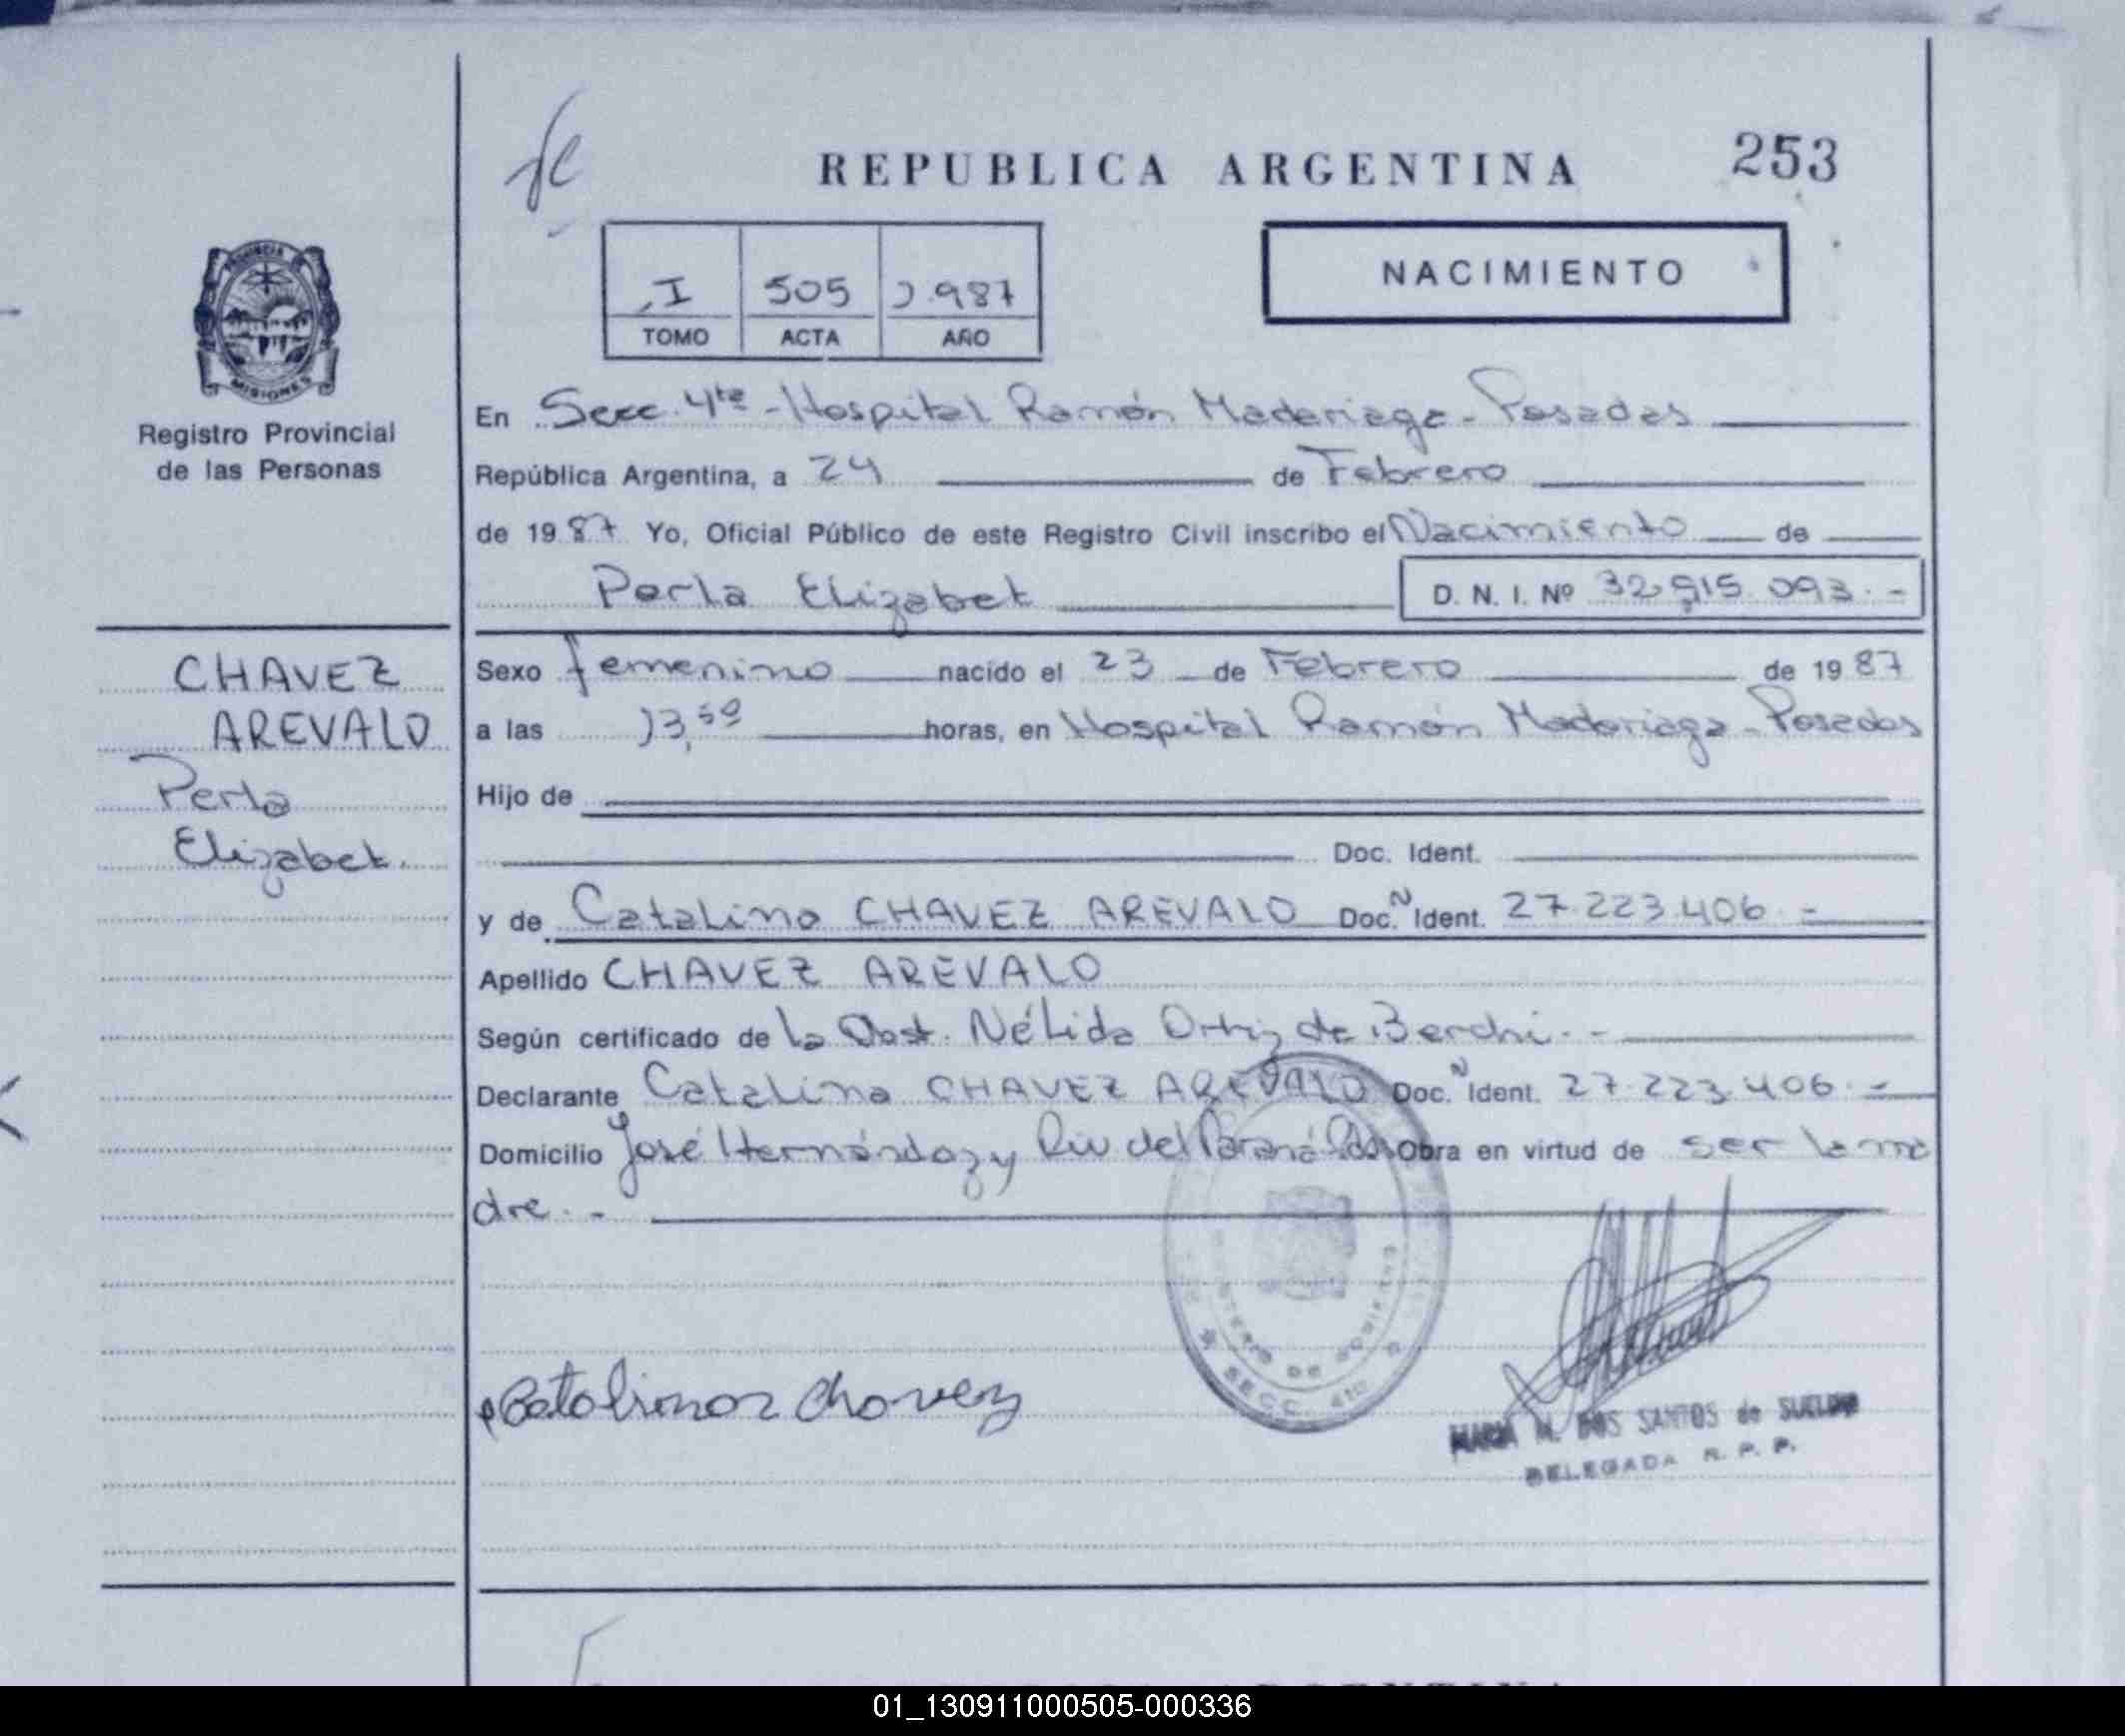 253
REPUBLICA ARGENTINA
NACIMIENTO
I 505 1.987
TOMO ACTA AÑO
PROVINCIA
MISIONES
Registro Provincial
de las Personas
CHAVEZ
AREVALO
Perla
Elizabet.
En Secc. 4ta - Hospital Ramón Madariaga - Posadas
República Argentina, a 24 de Febrero
de 1987 Yo, Oficial Público de este Registro Civil inscribo el Nacimiento de
Perla Elizabet D. N. I. Nº 32.915.093.-
Sexo femenino nacido el 23 de Febrero de 1987
a las 13,50 horas, en Hospital Ramón Madariaga - Posadas
Hijo de
Doc. Ident.
y de Catalina CHAVEZ AREVALO Doc. N Ident. 27.223.406.-
Apellido CHAVEZ AREVALO
Según certificado de la Obst. Nélida Ortiz de Berchi.-
Declarante Catalina CHAVEZ AREVALO Doc. N Ident. 27.223.406.-
Domicilio José Hernández y Riv del Paraná Pdas Obra en virtud de ser la ma
dre.-
Catalinaz Chavez
MINISTERIO DE GOBIERNO
SECC. 4ta
MARIA M. DOS SANTOS de SUELDO
DELEGADA R. P. P.
01_130911000505-000336